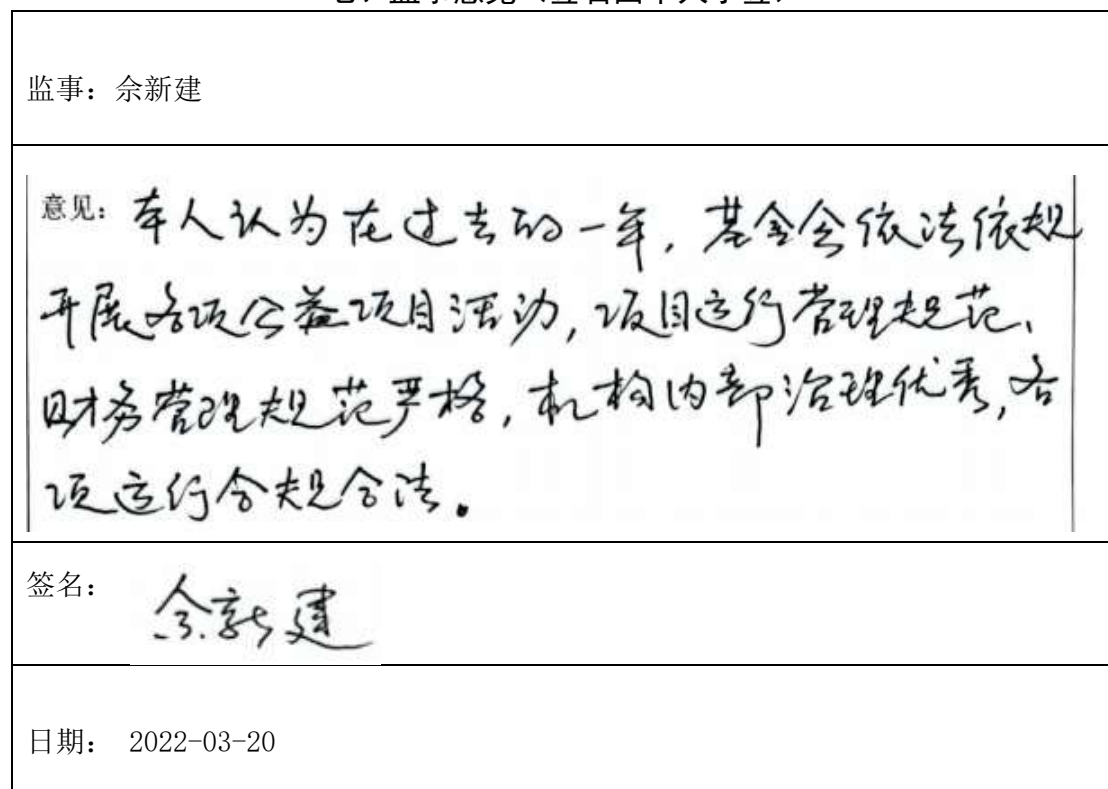 监事：佘新建
意见：本人认为在过去的一年，基金会依法依规
开展各项公益项目活动，项目运行管理规范、
财务管理规范严格，机构内部治理优秀，各
项运行合规合法。
签名：
佘新建
日期： 2022-03-20